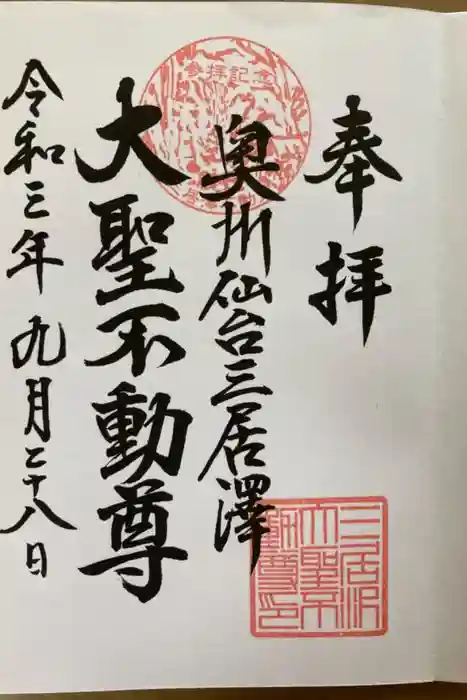 奉拝
参拝記念
奥州仙台三居澤
大聖不動尊
令和三年九月二十八日
三居沢
大聖不
動尊印